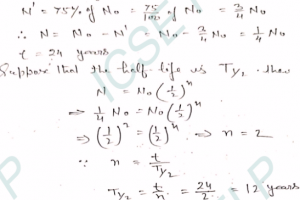 N' = 75% of N₀ = 75/100 of N₀ = 3/4 N₀
∴ N = N₀ - N' = N₀ - 3/4 N₀ = 1/4 N₀
t = 24 years
Suppose that the half life is T½ then
N = N₀ (1/2)ⁿ
⇒ 1/4 N₀ = N₀ (1/2)ⁿ
⇒ (1/2)² = (1/2)ⁿ ⇒ n = 2
∵ n = t/T½
T½ = t/n = 24/2 = 12 years